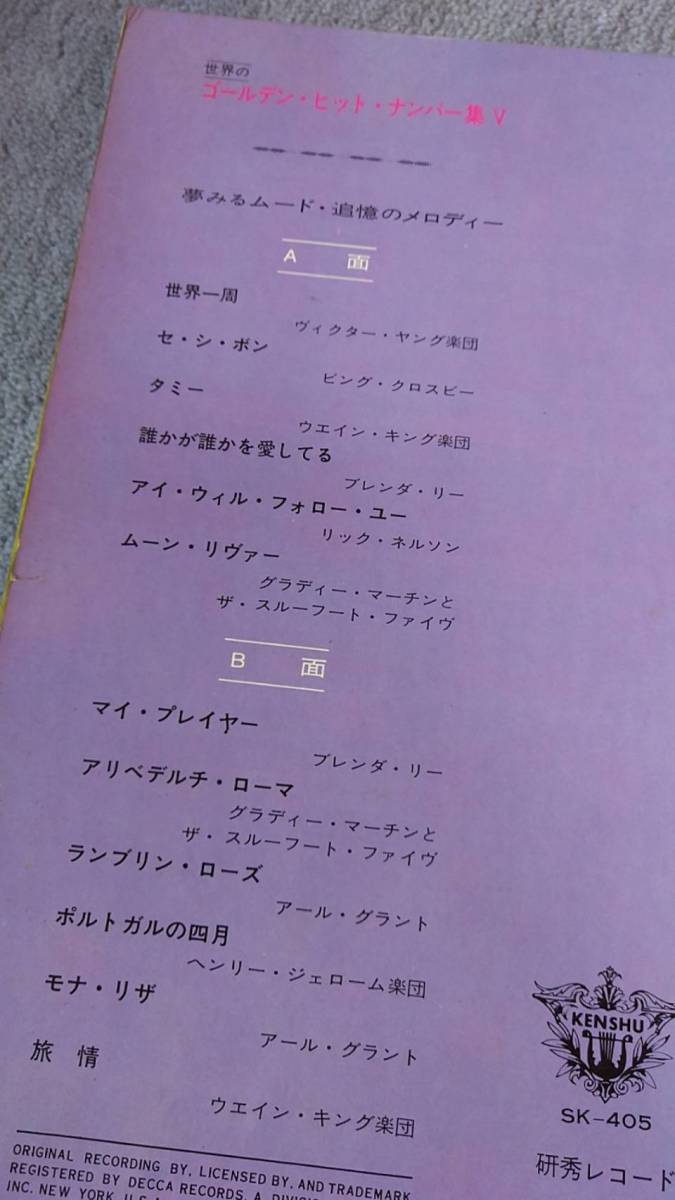 世界の
ゴールデン・ヒット・ナンバー集 V
夢みるムード・追憶のメロディー
A 面
世界一周
ヴィクター・ヤング楽団
セ・シ・ボン
ビング・クロスビー
タミー
ウエイン・キング楽団
誰かが誰かを愛してる
ブレンダ・リー
アイ・ウィル・フォロー・ユー
リック・ネルソン
ムーン・リヴァー
グラディー・マーチンと
ザ・スルーフート・ファイヴ
B 面
マイ・プレイヤー
ブレンダ・リー
アリベデルチ・ローマ
グラディー・マーチンと
ザ・スルーフート・ファイヴ
ランブリン・ローズ
アール・グラント
ポルトガルの四月
ヘンリー・ジェローム楽団
モナ・リザ
アール・グラント
旅情
ウエイン・キング楽団
KENSHU
SK-405
研秀レコード
ORIGINAL RECORDING BY, LICENSED BY, AND TRADEMARK
REGISTERED BY DECCA RECORDS, A
INC. NEW YORK